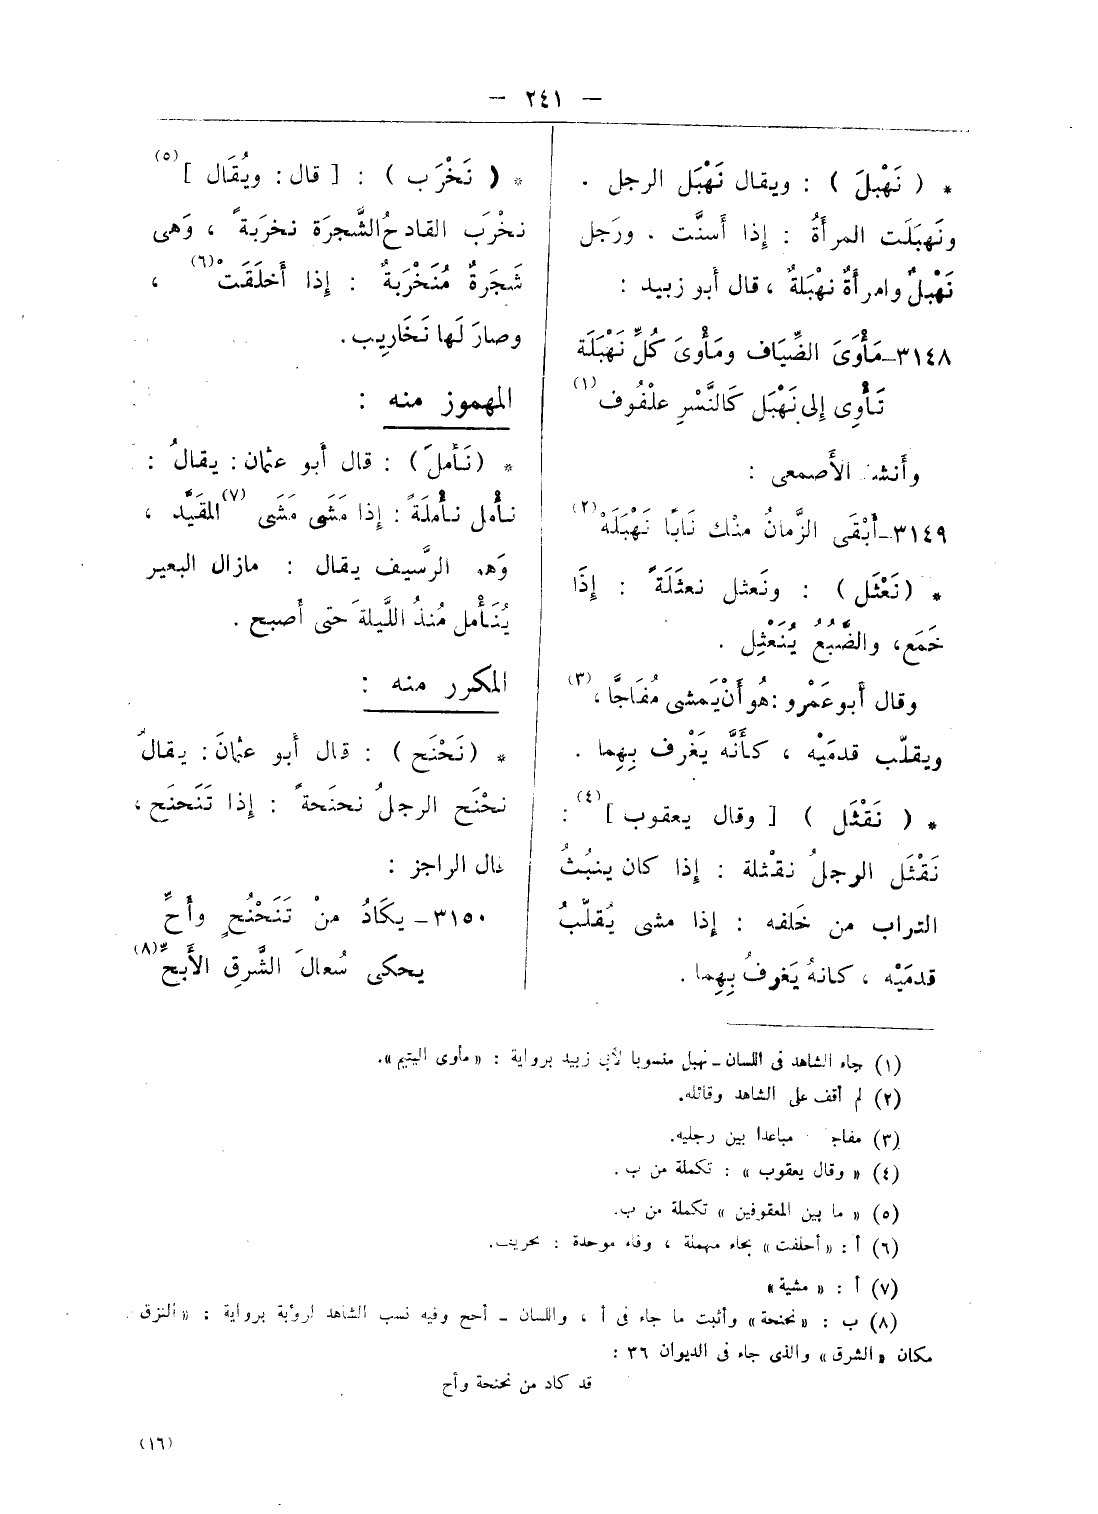 — ٢٤١ —
* ( نَهْبَلَ ) : ويقال نَهْبَل الرجل .
ونَهبَلَت المرأةُ : إذا أسنَّت . ورَجل
نَهْبلٌ وامرأةٌ نهْبَلةٌ ، قال أبو زبيد :
٣١٤٨ــ مَأْوَىَ الضِّيَاف ومَأْوىَ كُلِّ نَهْبَلَة
تَأْوِى إلى نَهْبَل كَالنَّسْرِ علْفُوف (١)
وأنشد الأَصمعى :
٣١٤٩ــ أَبْقَى الزَّمانُ منْك نَابًا نَهْبَلَهْ (٢)
* ( نَعْثَل ) : ونَعثل نعثَلَةً : إذَا
خَمَع ، والضَّبُعُ يُنَعْثِل .
وقال أبو عَمْرو : هُو أَنْ يَمشى مُفَاجًّا ، (٣)
ويقلّب قدمَيْه ، كأنَّه يَغْرف بِهِما .
* ( نَقْثَل ) [ وقال يعقوب ] (٤) :
نَقْثَل الرجلُ نقْثلة : إذا كان ينبُثُ
التراب من خَلفه : إذا مشى يُقلّبُ
قدمَيْه ، كانهُ يَغرفُ بِهِما .
* ( نَخْرَب ) : [ قال : ويُقَال ] (٥)
نخْرَبَ القادحُ الشَّجرَة نخرَبةً ، وَهى
شَجرَةٌ مُنَخْرَبةٌ : إذا أَخلَقَتْ (٦) ،
وصارَ لَها نَخَارِيب .
المهموز منه :
* ( نَأمَلَ ) : قال أبو عثمان : يقالُ :
نأْمل نأْملَةً : إذا مَشَى مَشَى (٧) المقَيَّد ،
وَهو الرَّسيف يقال : مازال البعير
يُنَأْمل مُنذُ اللَّيلةَ حتى أَصبح .
المكرر منه :
* ( نَحْنَح ) : قال أبو عثمانَ : يقالُ
نحْنَح الرجلُ نحنَحةً : إذا تَنَحنَح ،
قال الراجز :
٣١٥٠ــ يكَادُ منْ تَنَحْنُحٍ وأَحِّ
يحكى سُعالَ الشَّرِق الأَبحِّ (٨)
(١) جاء الشاهد فى اللسان ــ نهبل منسوبا لأبى زبيد برواية : « مأوى اليتيم ».
(٢) لم أقف على الشاهد وقائله.
(٣) مفاجا مباعدا بين رجليه.
(٤) « وقال يعقوب » : تكملة من ب .
(٥) « ما بين المعقوفين » تكملة من ب.
(٦) أ : « أحلفت » بحاء مهملة ، وفاء موحدة : تحريف.
(٧) أ : « مشية »
(٨) ب : « نحنحة » وأثبت ما جاء فى أ ، واللسان ــ أحح وفيه نسب الشاهد لرؤبة برواية : « النزق
مكان « الشرق » والذى جاء فى الديوان ٣٦ :
قد كاد من نحنحة وأح
(١٦)